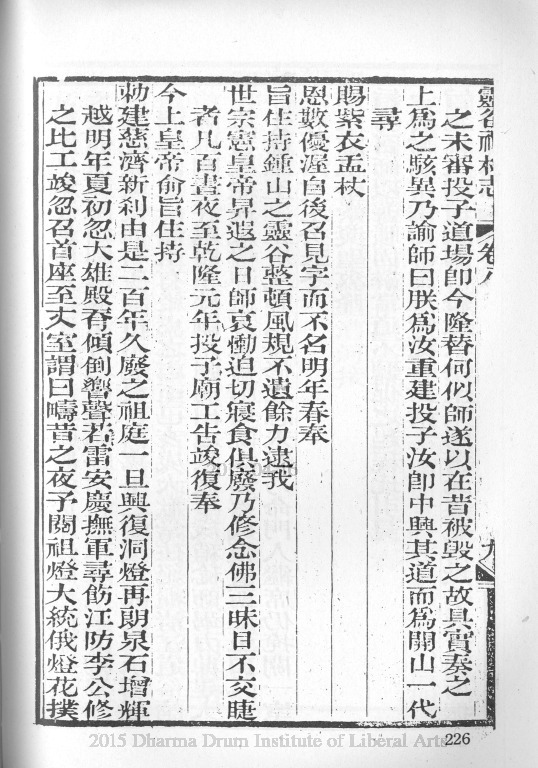 靈谷禪林志 卷八 九
之未審投子道場卽今隆替何似師遂以在昔被毁之故具實奏之
上爲之駭異乃諭師曰朕爲汝重建投子汝卽中興其道而爲開山一代
尋
賜紫衣盂杖
恩數優渥自後召見字而不名明年春奉
旨住持鍾山之靈谷整頓風規不遺餘力逮我
世宗憲皇帝昇遐之日師哀慟迫切寢食俱廢乃修念佛三昧目不交睫
者凡百晝夜至乾隆元年投子廟工告竣復奉
今上皇帝俞旨住持
勅建慈濟新刹由是二百年久廢之祖庭一旦興復洞燈再朗泉石增輝
越明年夏初忽大雄殿脊傾倒響聲若雷安慶撫軍尋飭江防李公修
之比工竣忽召首座至丈室謂曰疇昔之夜予閱祖燈大統俄燈花撲
2015 Dharma Drum Institute of Liberal Arts
226